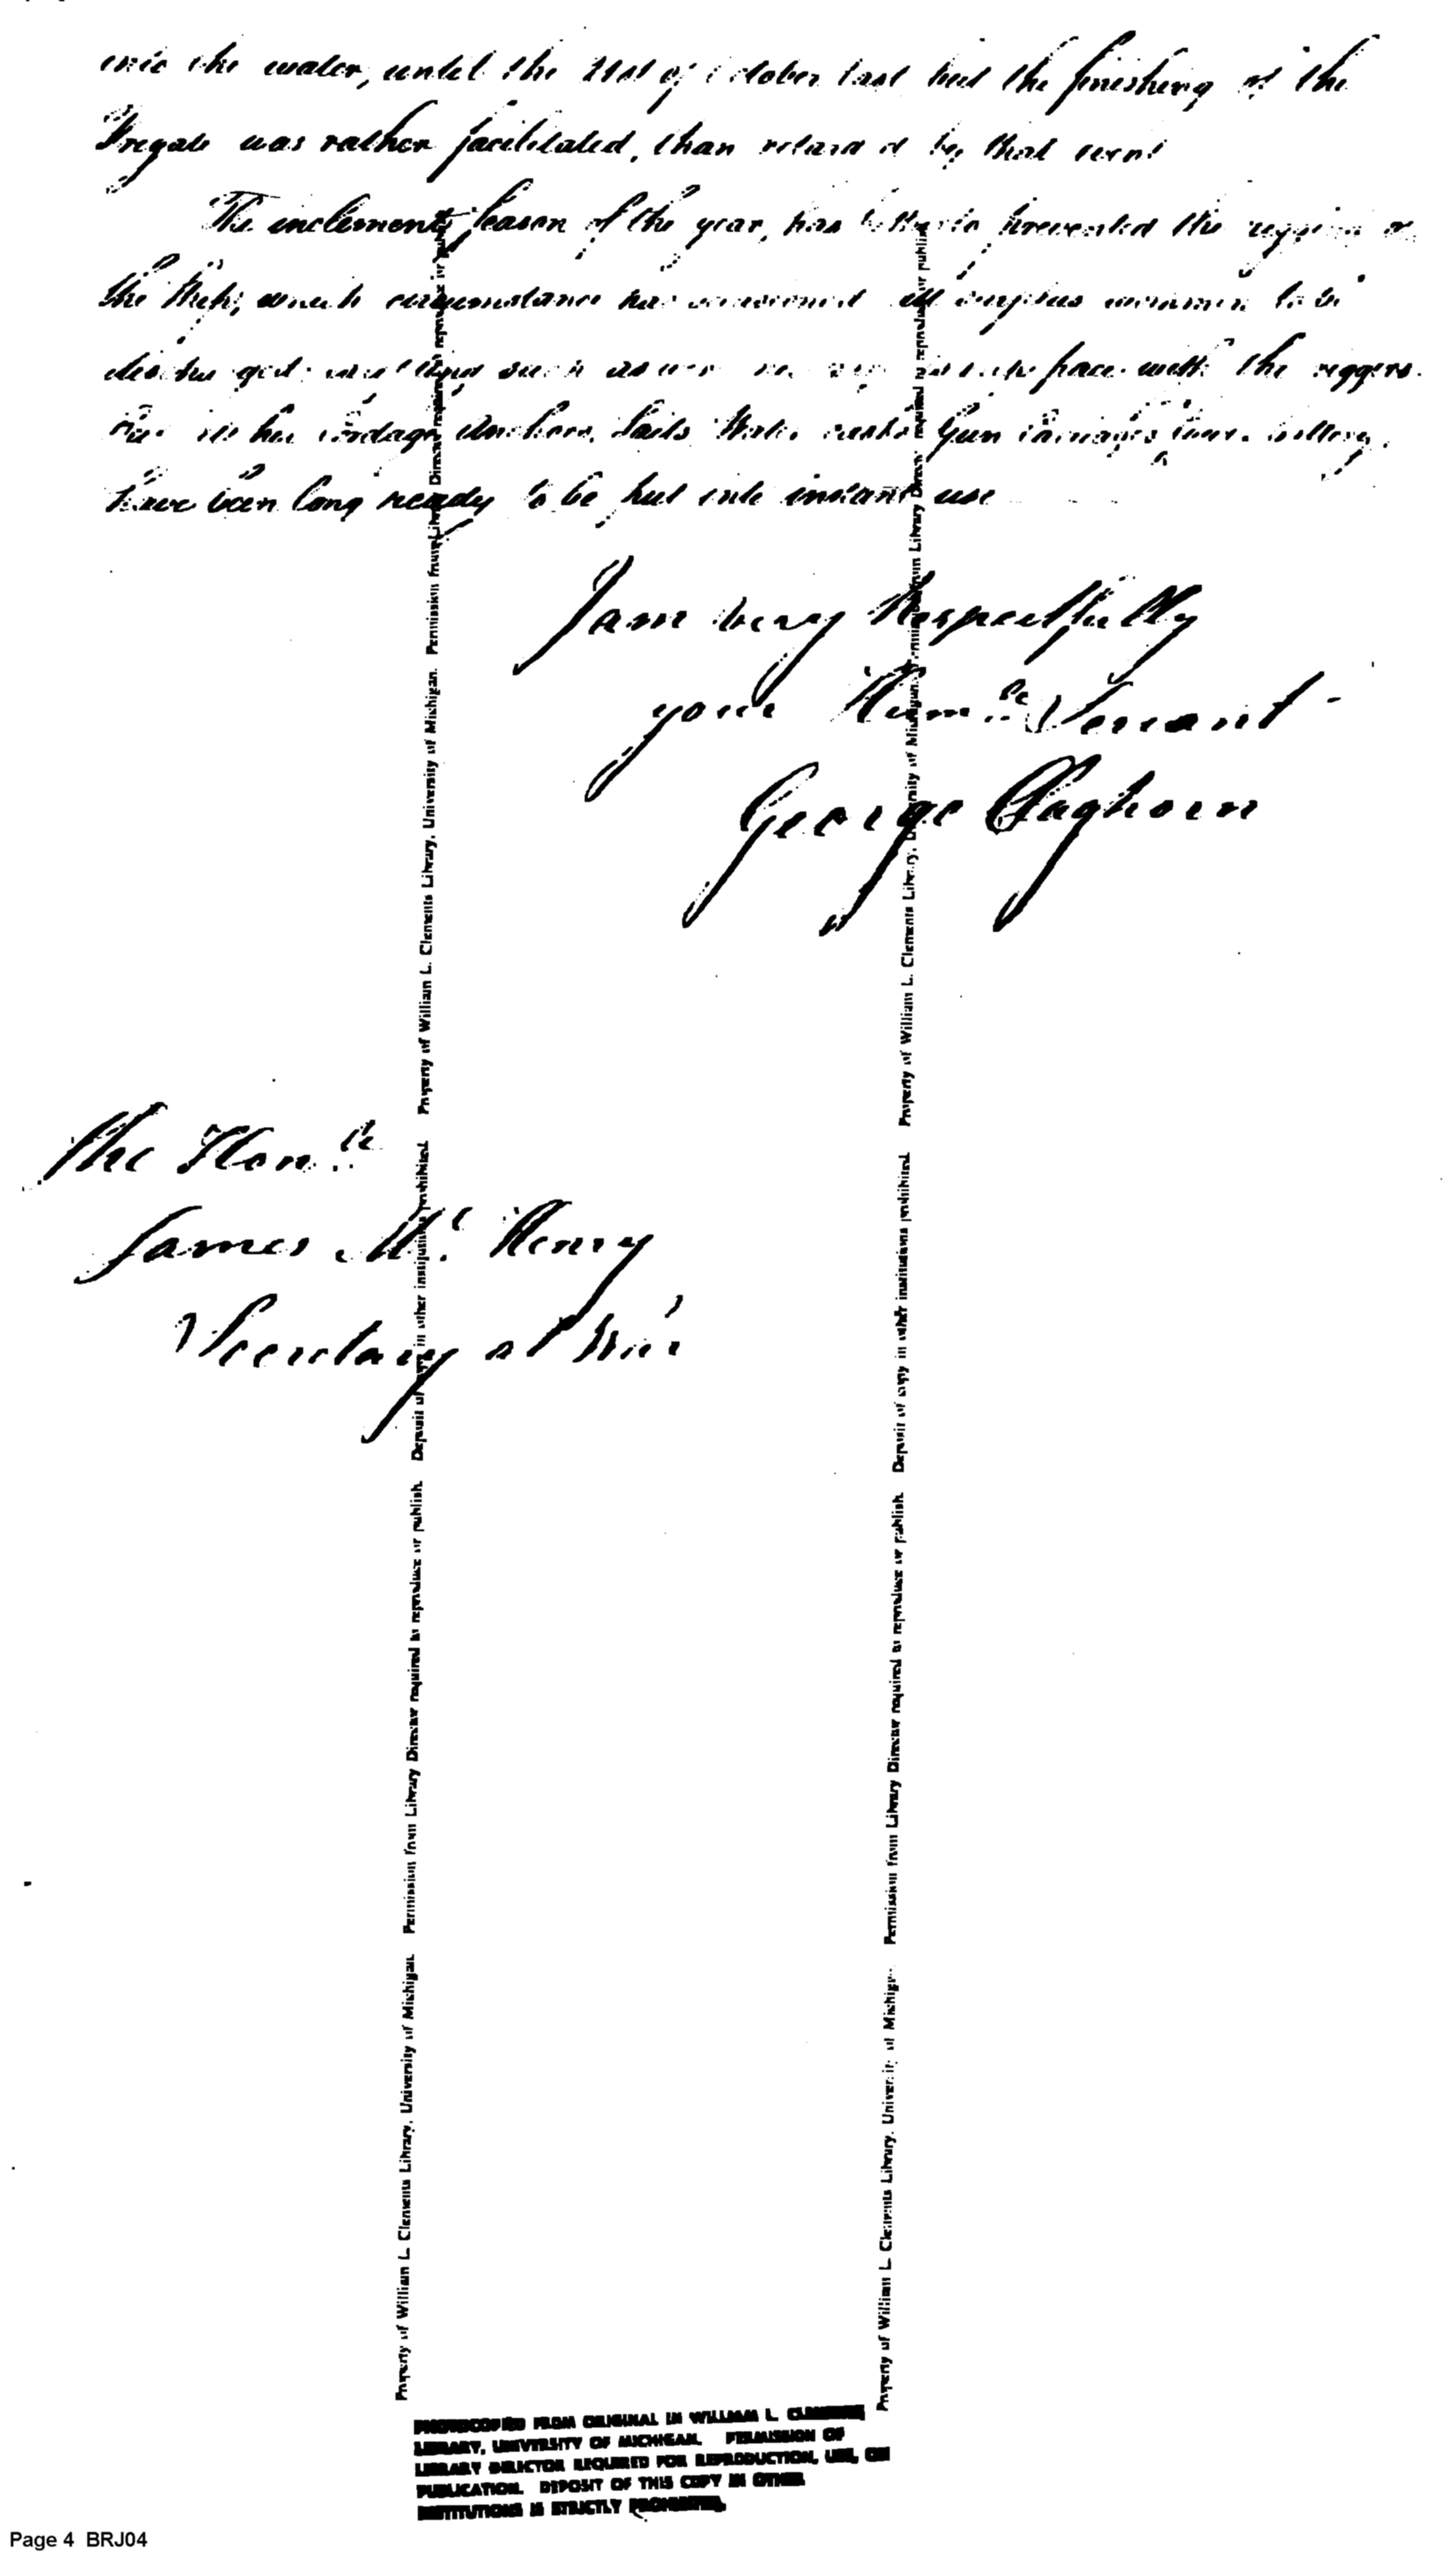 into the water, until the 21st of October last but the finishing of the
Fregate was rather facilitated, than retard d by that event
The inclement Season of the year, has hitherto prevented the rigging of
the Ship, which circumstance has occasioned all surplus workmen to be
discharged, such as were pace with the riggers.
her Cordage Anchors, Sails Water casks Gun Carriages
have been long ready to be put into instant use
I am very Respectfully
your Humble Servant
George Claghorn
The Honble
James Mc Henry
Secretary at War
Property of William L. Clements Library, University of Michigan. Permission from Library Director required to reproduce or publish. Deposit of copy in other institutions prohibited. Property of William L. Clements Library, University of Michigan. Permission from Library Director required to reproduce or publish.
Property of William L. Clements Library, University of Michigan. Permission from Library Director required to reproduce or publish. Deposit of copy in other institutions prohibited. Property of William L. Clements Library, University of Michigan. Permission from Library Director required to reproduce or publish.
PHOTOCOPIED FROM ORIGINAL IN WILLIAM L. CLEMENTS
LIBRARY, UNIVERSITY OF MICHIGAN. PERMISSION OF
LIBRARY DIRECTOR REQUIRED FOR REPRODUCTION, USE, OR
PUBLICATION. DEPOSIT OF THIS COPY IN OTHER
INSTITUTIONS IS STRICTLY PROHIBITED.
Page 4 BRJ04